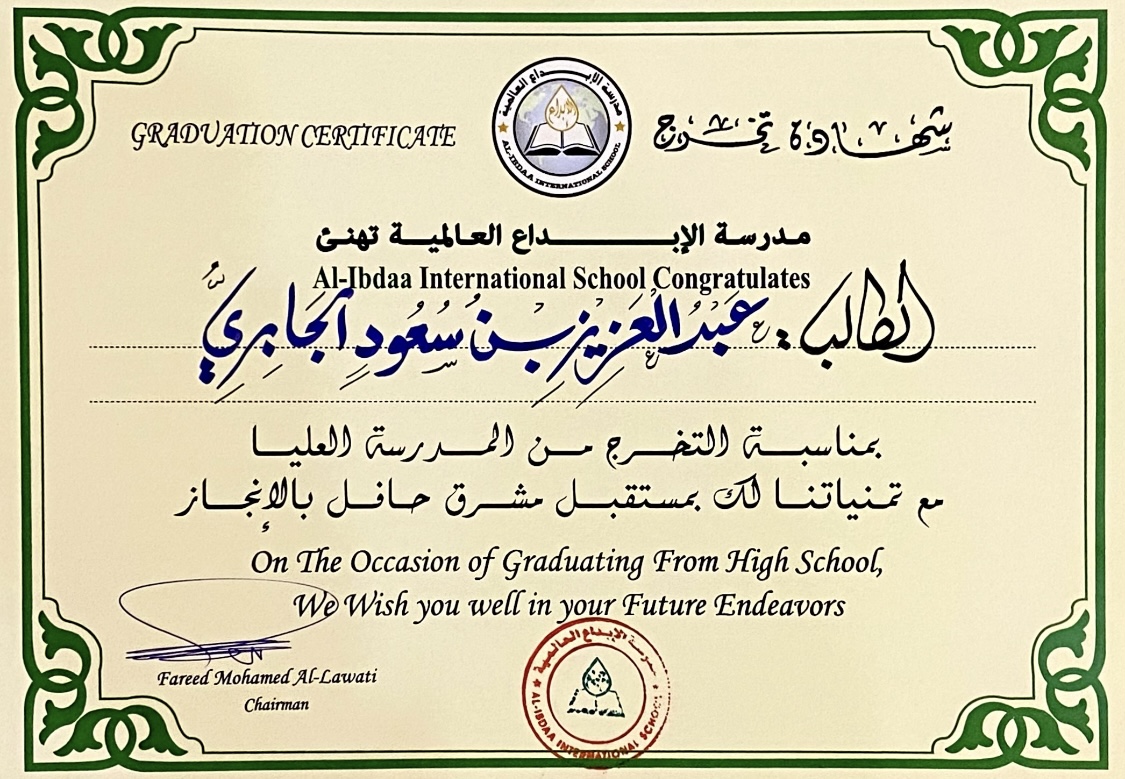 GRADUATION CERTIFICATE
مدرسة الإبداع العالمية
الإبداع
AL-IBDAA INTERNATIONAL SCHOOL
شهادة تخرج
مدرسة الإبــداع العالمية تهنئ
Al-Ibdaa International School Congratulates
الطالب : عَبْدُ العَزِيزِ بْنُ سُعُودٍ الجَابِرِيُّ
بمناسبة التخرج من المدرسة العليا
مع تمنياتنا لك بمستقبل مشرق حافل بالإنجاز
On The Occasion of Graduating From High School,
We Wish you well in your Future Endeavors
Fareed Mohamed Al-Lawati
Chairman
مدرسة الإبداع العالمية
AL-IBDAA INTERNATIONAL SCHOOL